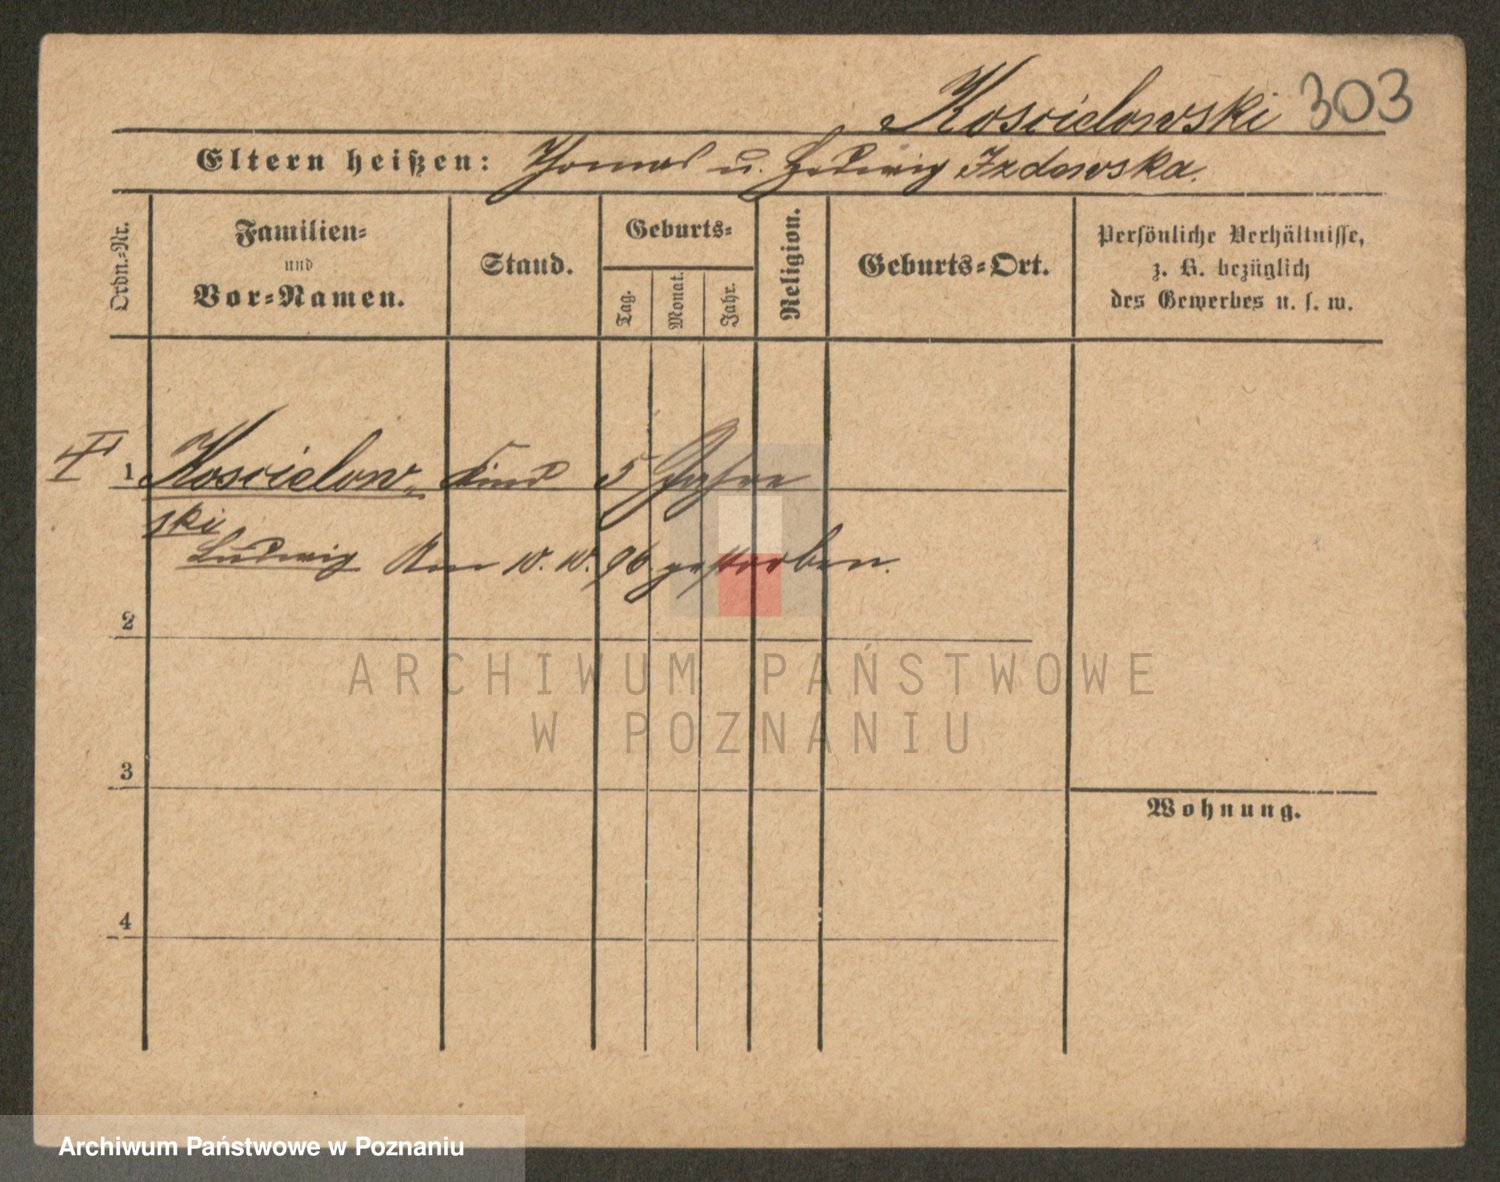 Koscielowski 303
Eltern heißen: Thomas u. Hedwig Izdowska.
Ordn.-Nr.
Familien-
und
Vor-Namen.
Stand.
Geburts-
Tag.
Monat.
Jahr.
Religion.
Geburts-Ort.
Persönliche Verhältnisse,
z. B. bezüglich
des Gewerbes u. s. w.
1 Koscielow- Kind 5 Jahre
ski
Ludwig Am 10. 10. 96 gestorben.
2
3
4
Wohnung.
ARCHIWUM PAŃSTWOWE
W POZNANIU
Archiwum Państwowe w Poznaniu